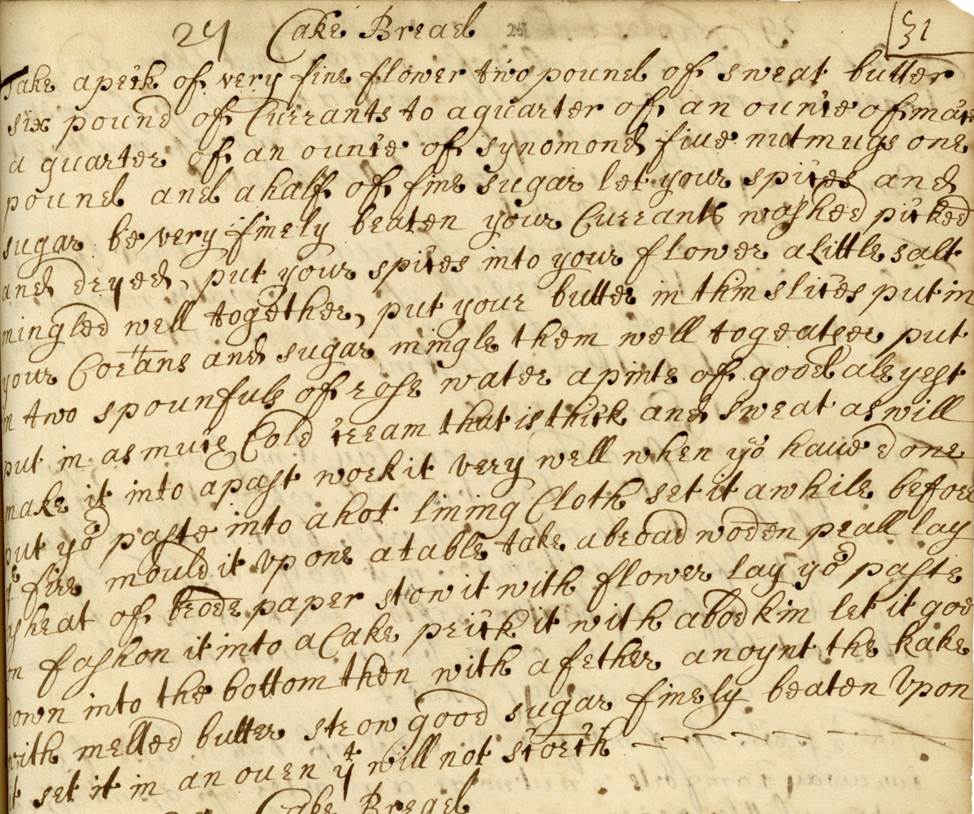 24 Cake Bread 25
31
Take a peck of very fine flower two pound of sweat butter
six pound of Currants to a quarter of an ounce of mace
a quarter of an ounce of synomond five nutmugs one
pound and a half of fine sugar let your spices and
sugar be very finely beaten your Currants washed picked
and dryed, put your spices into your flower a little salt
mingled well together, put your butter in thin slices put in
your Corans and sugar mingle them well togeather put
in two spounfuls of rose water a pinte of good ale yest
put in as much Cold cream that is thick and sweat as will
make it into a past work it very well when yo haue done
put yor paste into a hot lining Cloth set it a while before
fire mould it vp one a table take a broad woden peall lay
a sheat of brode paper strow it with flower lay yor paste
on fashon it into a Cake prick it with a bodkin let it goe
down into the bottom then with a fether anoynt the kake
with melted butter strow good sugar finely beaten Vpon
it set it in an ouen yt will not scorch
Cake Bread